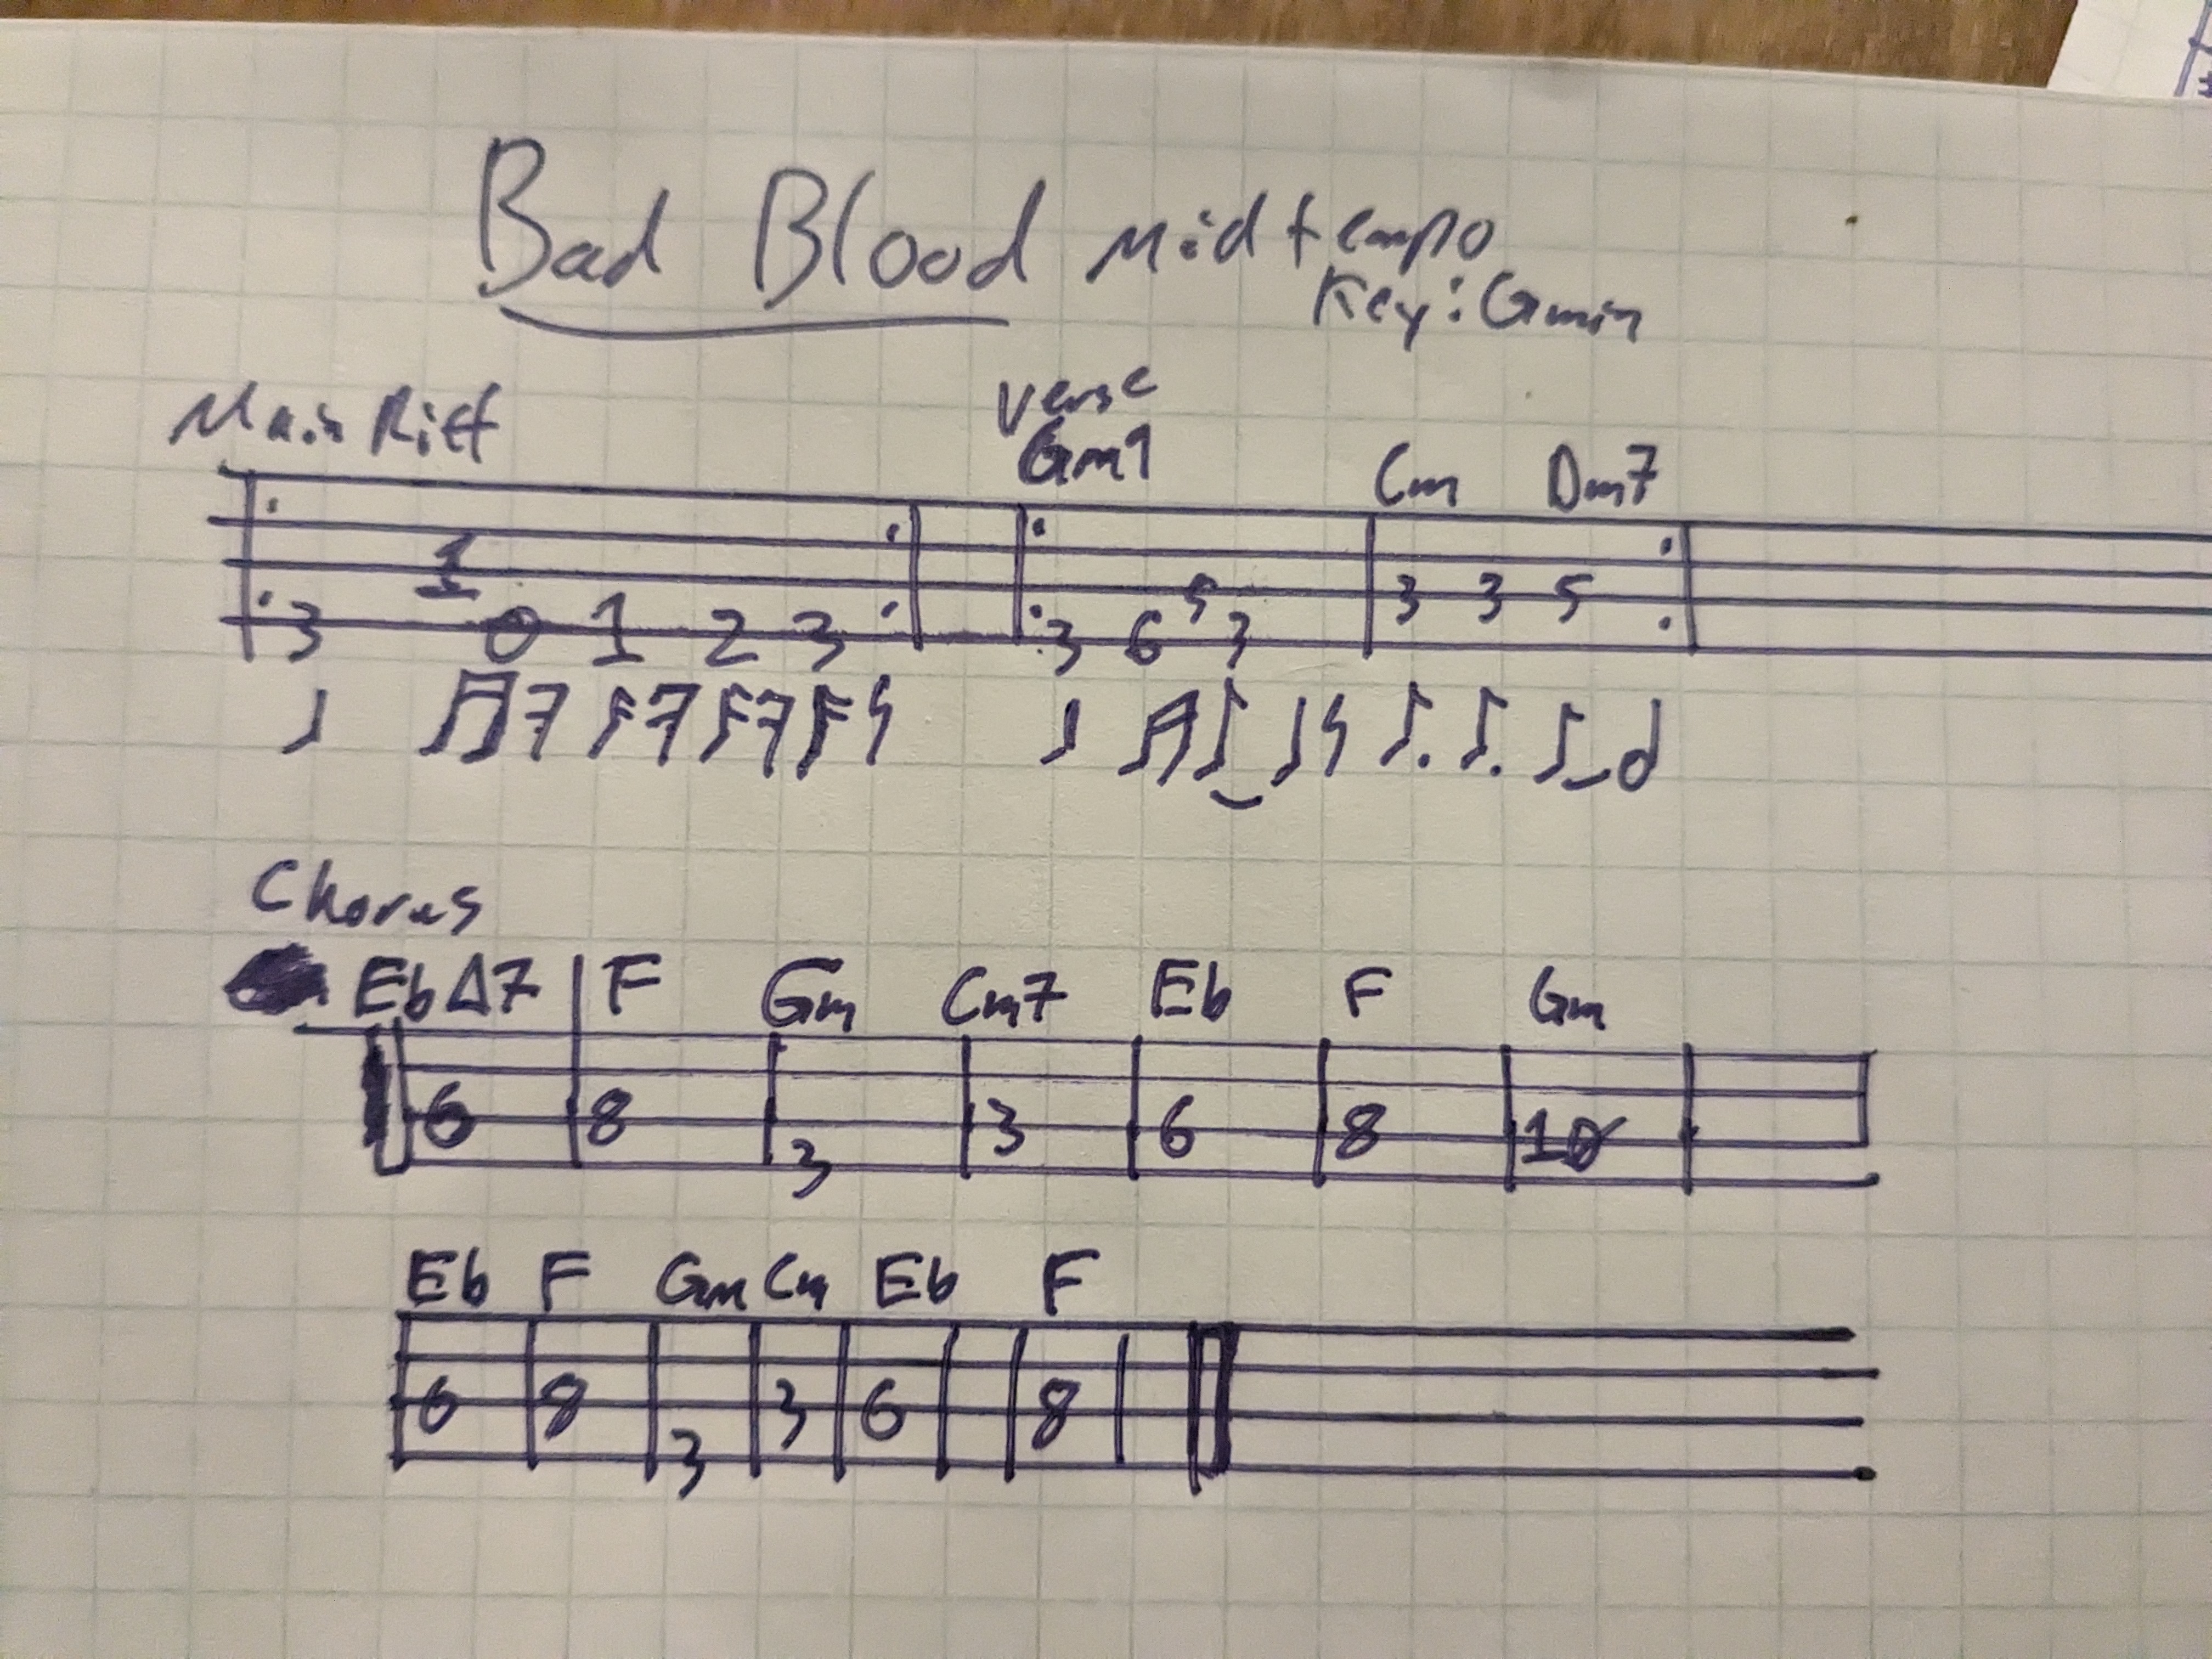 Bad Blood Midtempo
Key: Gmin
Main Riff
Verse
Gm9 Cm Dm7
1
3 0 1 2 3
5
3 6 3 3 3 5
Chorus
Eb Δ7 F Gm Cm7 Eb F Gm
6 8 3 3 6 8 10
Eb F Gm Cm Eb F
6 8 3 3 6 8